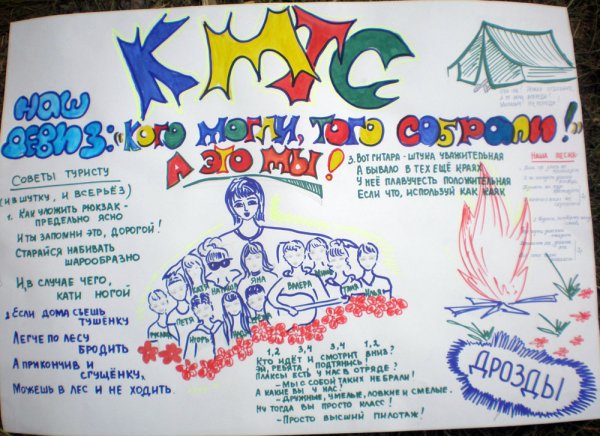 КМТС
НАШ
ДЕВИЗ: «КОГО МОГЛИ, ТОГО СОБРАЛИ!»
А ЭТО МЫ!
СОВЕТЫ ТУРИСТУ
(И В ШУТКУ, И ВСЕРЬЁЗ)
1. КАК УЛОЖИТЬ РЮКЗАК -
ПРЕДЕЛЬНО ЯСНО
И ТЫ ЗАПОМНИ ЭТО, ДОРОГОЙ!
СТАРАЙСЯ НАБИВАТЬ
ШАРООБРАЗНО
И, В СЛУЧАЕ ЧЕГО,
КАТИ НОГОЙ
2. ЕСЛИ ДОМА СЪЕШЬ
ТУШЁНКУ
ЛЕГЧЕ ПО ЛЕСУ
БРОДИТЬ
А ПРИКОНЧИВ И
СГУЩЁНКУ,
МОЖЕШЬ В ЛЕС И НЕ ХОДИТЬ
3. ВОТ ГИТАРА - ШТУКА УВАЖИТЕЛЬНАЯ
А БЫВАЛО В ТЕХ ЕЩЁ КРАЯХ
У НЕЁ ПЛАВУЧЕСТЬ ПОЛОЖИТЕЛЬНАЯ
ЕСЛИ ЧТО, ИСПОЛЬЗУЙ КАК КАЯК
РУСЛАН
ПЕТЯ
КАТЯ
ИГОРЬ
НАТАША
ЯНА
ВАЛЕРА
МИША
ТАНЯ
ИЛЬЯ
1,2 3,4 3,4 1,2
КТО ИДЁТ И СМОТРИТ ВНИЗ?
ЭЙ, РЕБЯТА, ПОДТЯНИСЬ!
ПЛАКСЫ ЕСТЬ У НАС В ОТРЯДЕ?
- МЫ С СОБОЙ ТАКИХ НЕ БРАЛИ!
А КАКИЕ ВЫ У НАС?
- ДРУЖНЫЕ, УМЕЛЫЕ, ЛОВКИЕ И СМЕЛЫЕ.
НУ ТОГДА ВЫ ПРОСТО КЛАСС!
- ПРОСТО ВЫСШИЙ ПИЛОТАЖ!
НАША ПЕСНЯ
ДРОЗДЫ